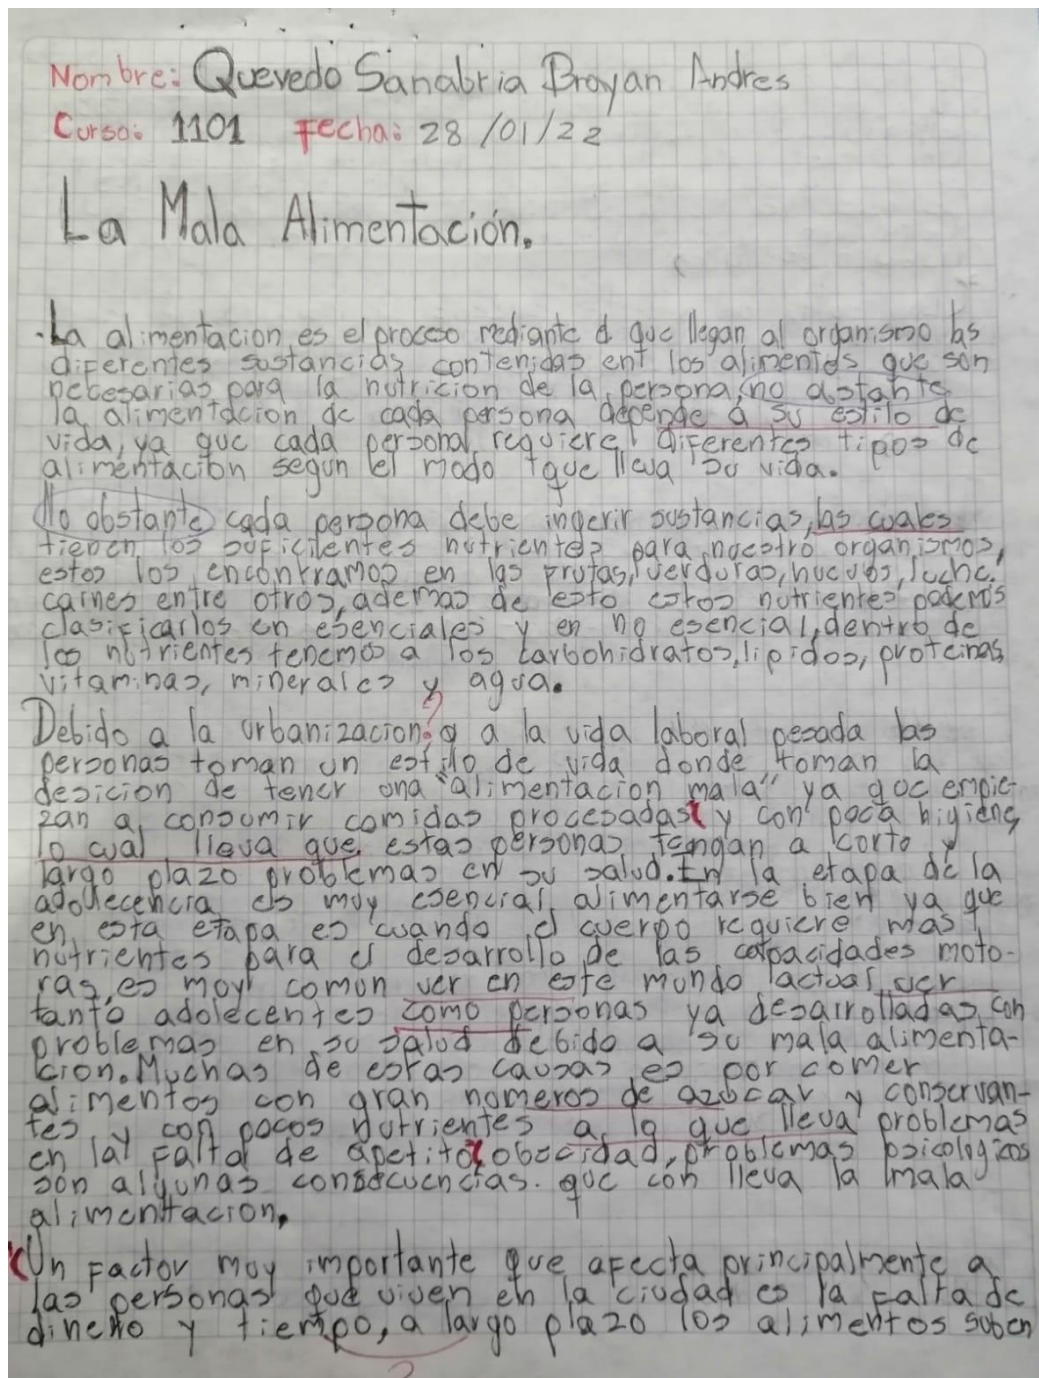 Nombre: Quevedo Sanabria Brayan Andres
Curso: 1101 Fecha: 28/01/22
La Mala Alimentación.
La alimentacion es el proceso mediante el que llegan al organismo las
diferentes sustancias contenidas ent los alimentos que son
necesarias para la nutricion de la persona, no obstante
la alimentacion de cada persona depende a su estilo de
vida, ya que cada personal requiere diferentes tipos de
alimentación segun el modo que lleva su vida.
No obstante cada persona debe ingerir sustancias, las cuales
tienen los suficientes nutrientes para nuestro organismos,
estos los encontramos en las frutas, verduras, huevos, leche,
carnes entre otros, ademas de esto estos nutrientes podemos
clasificarlos en esenciales y en no esencial, dentro de
los nutrientes tenemos a los carbohidratos, lipidos, proteinas,
vitaminas, minerales y agua.
Debido a la urbanizacion ? o a la vida laboral pesada las
personas toman un estilo de vida donde toman la
desicion de tener una "alimentacion mala" ya que empie-
zan a consumir comidas procesadas y con poca higiene,
lo cual lleva que estas personas tengan a corto y
largo plazo problemas en su salud. En la etapa de la
adolecencia es muy esencial alimentarse bien ya que
en esta etapa es cuando el cuerpo requiere mas
nutrientes para el desarrollo de las capacidades moto-
ras, es muy comun ver en este mundo actual ver
tanto adolecentes como personas ya desarrolladas con
problemas en su salud debido a su mala alimenta-
cion. Muchas de estas causas es por comer
alimentos con gran numeros de azucar y conservan-
tes, y con pocos nutrientes a lo que lleva problemas
en la falta de apetito, obecidad, problemas psicologicos
son algunas consecuencias que con lleva la mala
alimentacion.
Un factor muy importante que afecta principalmente a
las personas que viven en la ciudad es la falta de
dinero y tiempo, a largo plazo los alimentos suben
?